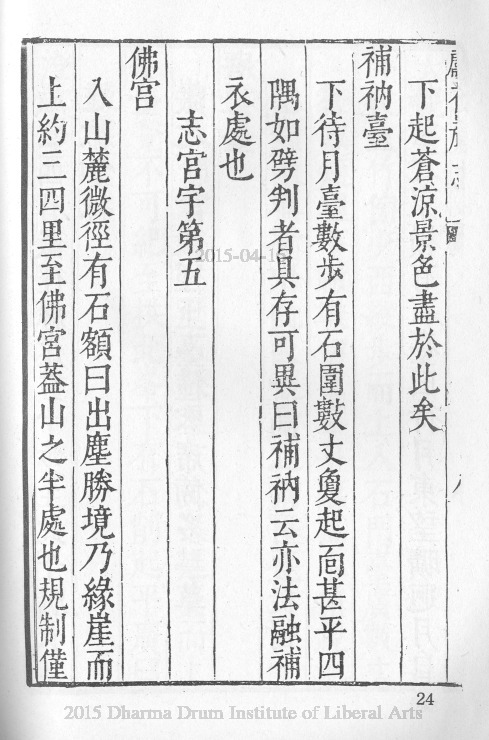 下起蒼涼景色盡於此矣
補衲臺
下待月臺數步有石圍數丈敻起面甚平四
隅如劈判者具存可異曰補衲云亦法融補
衣處也
志宮宇第五
佛宮
入山麓微徑有石額曰出塵勝境乃緣崖而
上約三四里至佛宮葢山之半處也規制僅
24
2015 Dharma Drum Institute of Liberal Arts